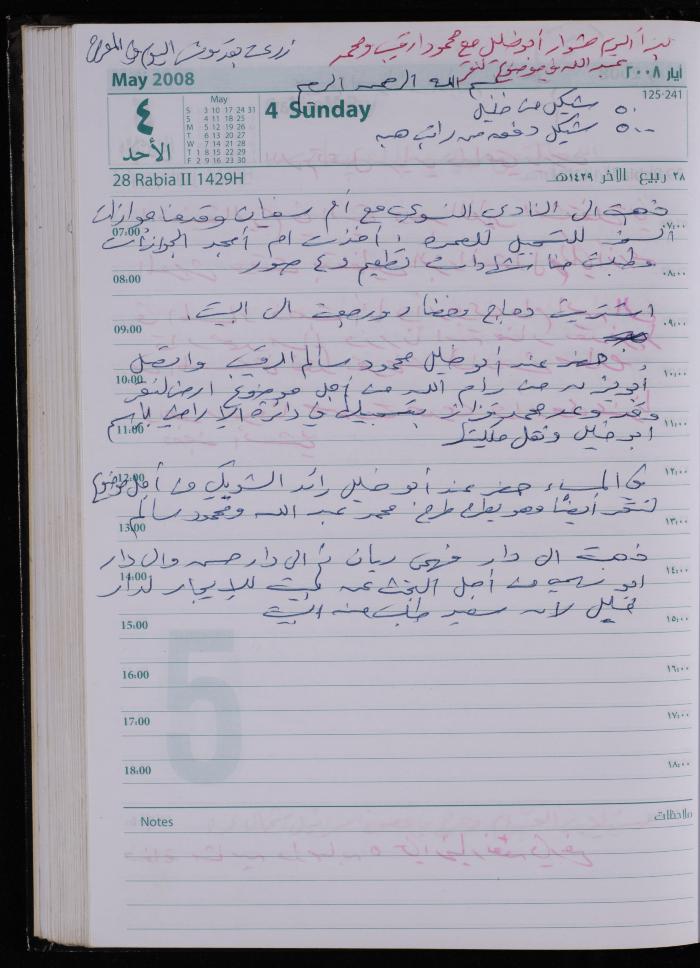 بدأ اليوم مشوار أبو خليل مع محمود الرقب ومحمد
عبد الله في موضوع لنقر
زرعت بقدونس اليوم في المفراح
May 2008
أيار ٢٠٠٨
بسم الله الرحمن الرحيم
٤
الأحد
May
S 3 10 17 24 31
S 4 11 18 25
M 5 12 19 26
T 6 13 20 27
W 7 14 21 28
T 1 8 15 22 29
F 2 9 16 23 30
4 Sunday
125-241
٥٠ شيكل من خليل
٥٠٠ شيكل دفعه من راتب هبه
28 Rabia II 1429H
٢٨ ربيع الآخر ١٤٢٩هـ
ذهبت الى النادي النسوي مع أم سفيان وقدمنا جوازات
07:00 ٠٧:٠٠
السفر للتسجيل للعمره، أخذت ام أمجد الجوازات
وطلبت منا شهادات تطعيم و٤ صور
08:00 ٠٨:٠٠
اشتريت دجاج وخضار ورجعت الى البيت.
09:00 ٠٩:٠٠
حضر عند أبو خليل محمود سالم الرقب واتصل
10:00 ١٠:٠٠
أبو يزيد من رام الله من أجل موضوع ارض لنقر
وقد وعد محمد فواز بتسجيل في دائرة الأراضي باسم
11:00 ١١:٠٠
ابو خليل ونقل ملكيتها
12:00 ١٢:٠٠
في المساء حضر عند أبو خليل رائد الشويكي من أجل موضوع
لنقر أيضاً وهو يطرح طرح محمد عبد الله ومحمود سالم
13:00 ١٣:٠٠
ذهبت الى دار فهمي ريان ثم الى دار حسن والى دار
14:00 ١٤:٠٠
ابو سهيل من أجل البحث عن بيت للإيجار لدار
خليل لأن سعيد طلب منه البيت
15:00 ١٥:٠٠
16:00 ١٦:٠٠
17:00 ١٧:٠٠
18:00 ١٨:٠٠
Notes
ملاحظات